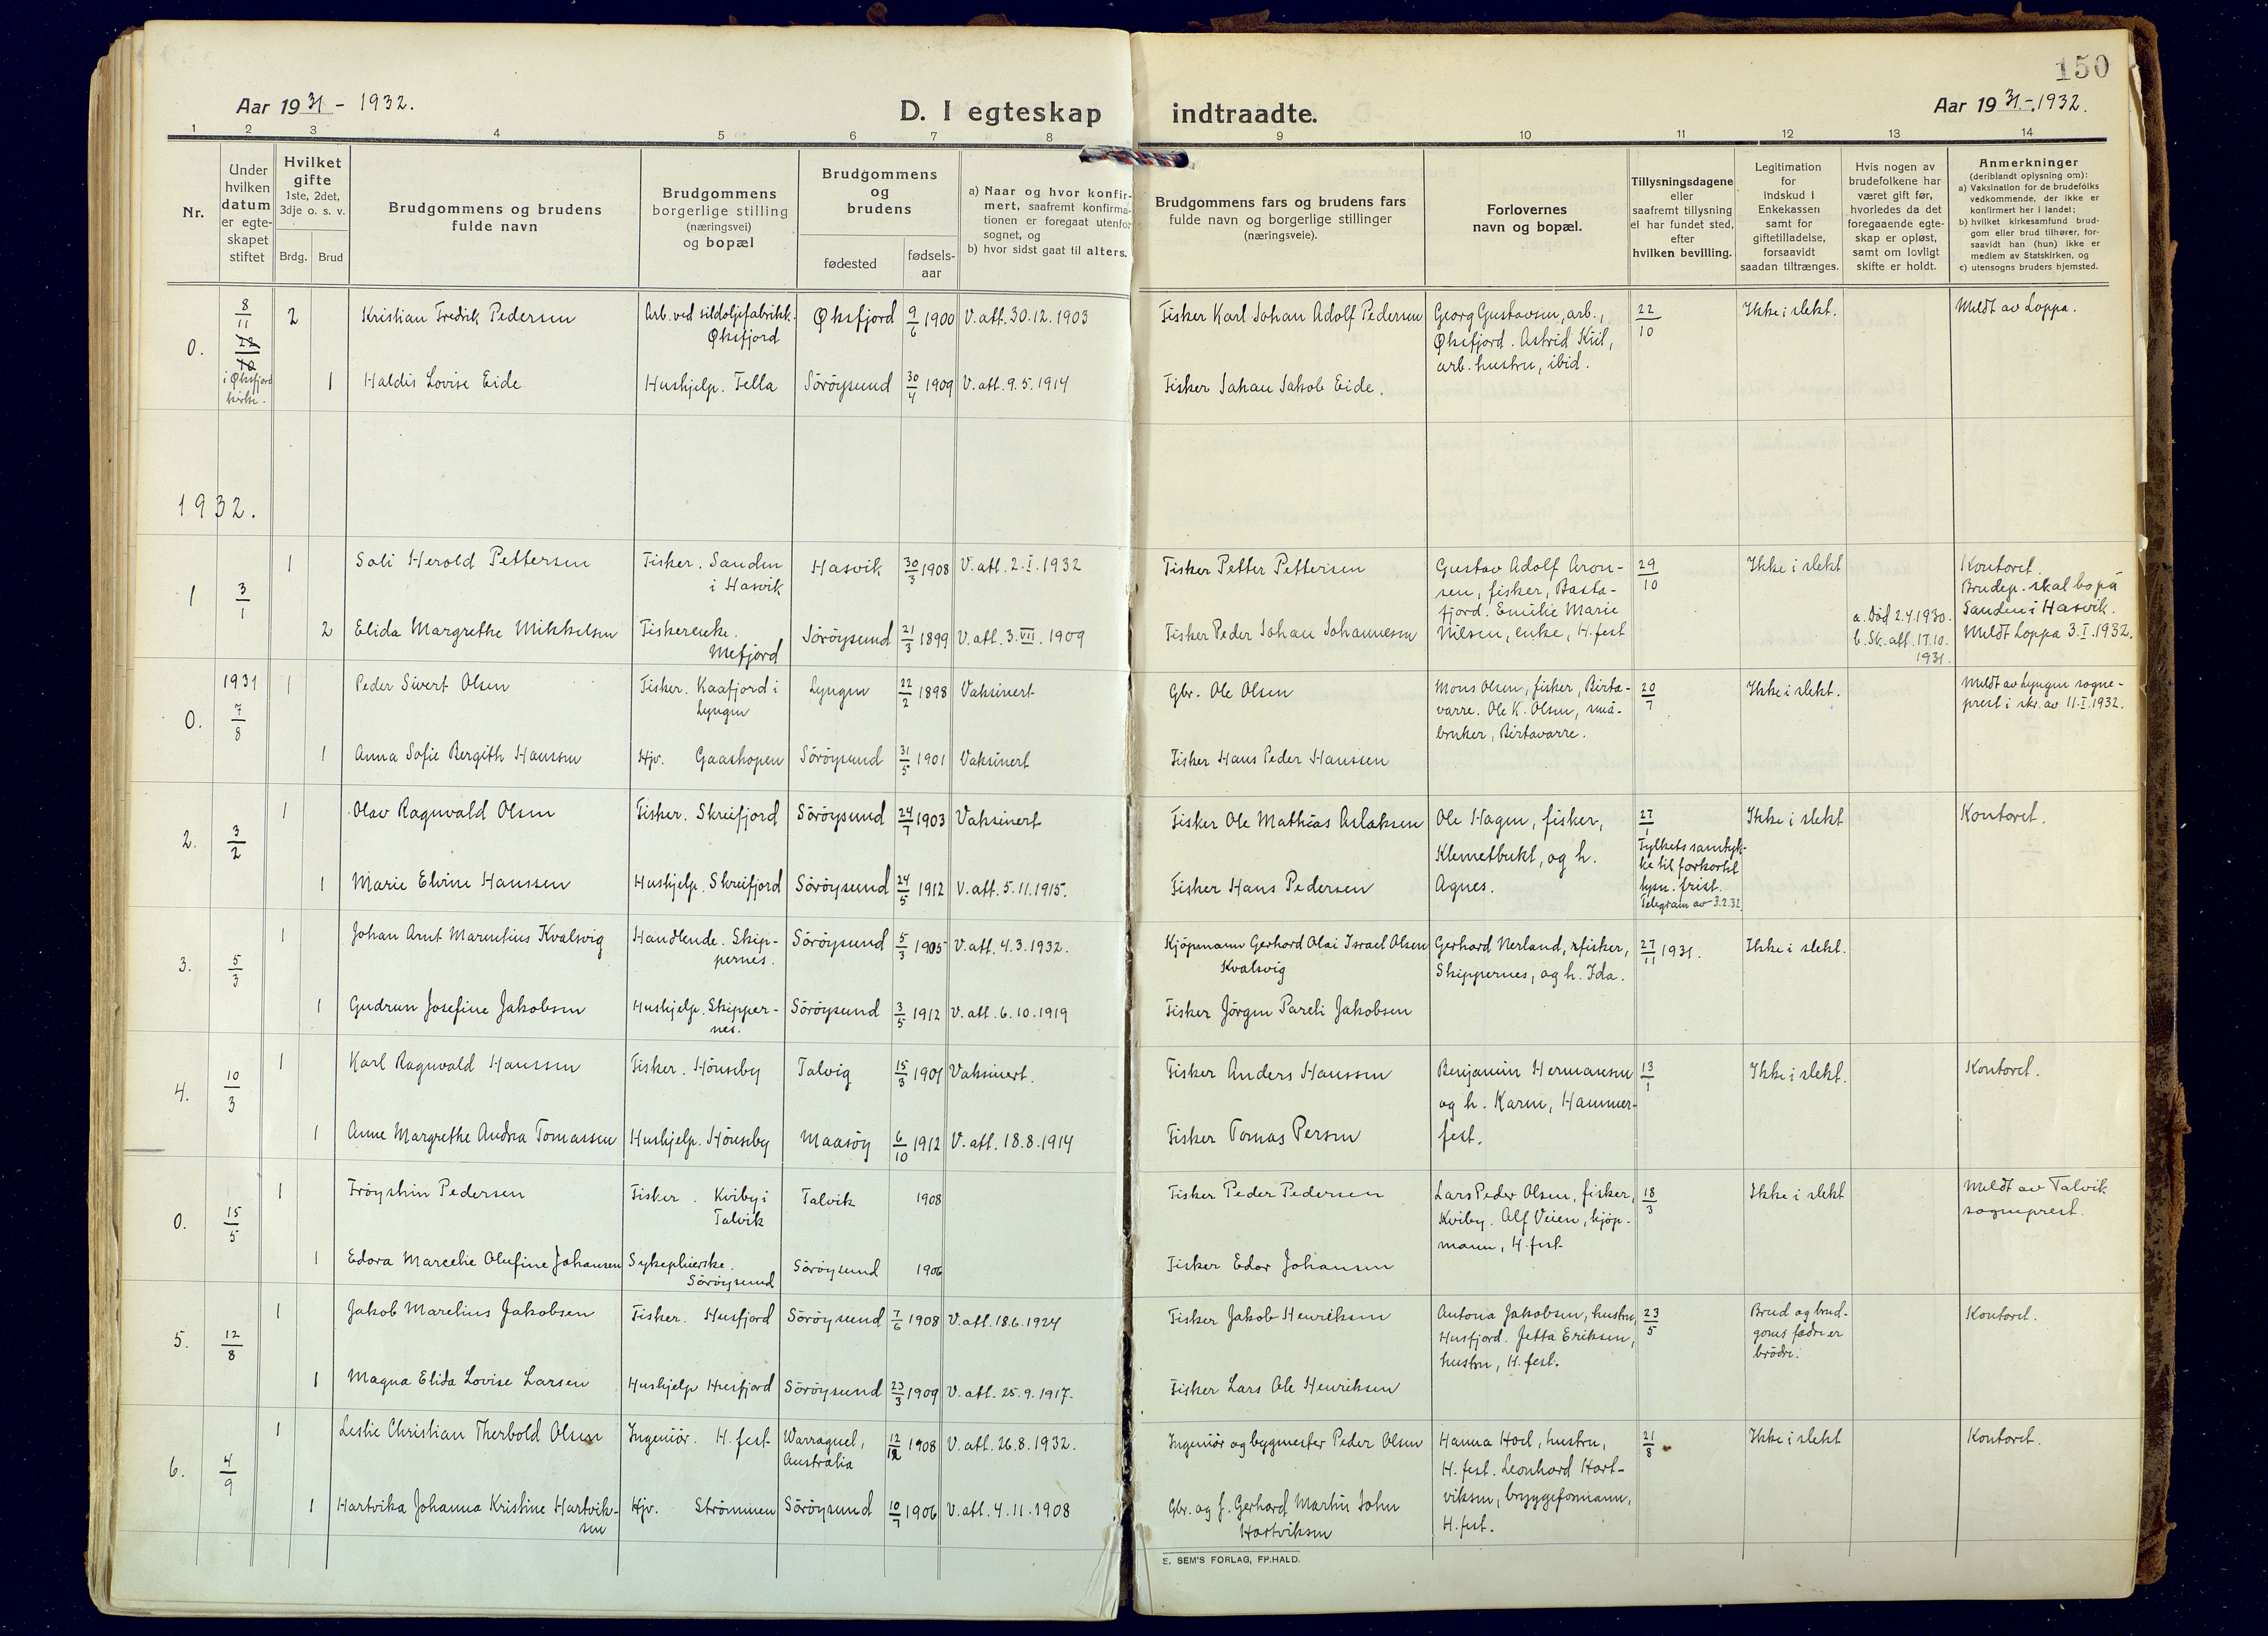 150
Aar 1931 - 1932.
D. I egteskap indtraadte.
Aar 1931 - 1932.
1 2 3 4 5 6 7 8 9 10 11 12 13 14
Nr.
Under
hvilken
datum
er egte-
skapet
stiftet
Hvilket
gifte
1ste, 2det,
3dje o. s. v.
Brdg. Brud
Brudgommens og brudens
fulde navn
Brudgommens
borgerlige stilling
(næringsvei)
og bopæl
Brudgommens
og
brudens
fødested
fødsels-
aar
a) Naar og hvor konfir-
mert, saafremt konfirma-
tionen er foregaat utenfor
sognet, og
b) hvor sidst gaat til alters.
Brudgommens fars og brudens fars
fulde navn og borgerlige stillinger
(næringsveie).
Forlovernes
navn og bopæl.
Tillysningsdagene
eller
saafremt tillysning
ei har fundet sted,
efter
hvilken bevilling.
Legitimation
for
indskud i
Enkekassen
samt for
giftetilladelse,
forsaavidt
saadan tiltrænges.
Hvis nogen av
brudefolkene har
været gift før,
hvorledes da det
foregaaende egte-
skap er opløst,
samt om lovligt
skifte er holdt.
Anmerkninger
(deriblandt oplysning om):
a) Vaksination for de brudefolks
vedkommende, der ikke er
konfirmert her i landet;
b) hvilket kirkesamfund brud-
gom eller brud tilhører, for-
saavidt han (hun) ikke er
medlem av Statskirken, og
c) utensogns bruders hjemsted.
0.
8/11
22/10
i Øksfjord
kirke.
2 Kristian Fredrik Pedersen
Arb. ved sildoljefabrikk.
Øksfjord
Øksfjord 9/6 1900 V. att. 30.12.1903
Fisker Karl Johan Adolf Pedersen
Georg Gustavsen, arb.,
Øksfjord. Astrid Kiil,
arb. hustru, ibid.
22/10
Ikke i slekt.
Meldt av Loppa.
1 Haldis Lovise Eide
Hushjelp. Fella
Söröysund 30/4 1909 V. att. 9.5.1914
Fisker Johan Jakob Eide.
1932.
1 3/1
1 Soli Herold Pettersen
Fisker. Sanden
i Hasvik
Hasvik 30/3 1908 V. att. 2.I.1932
Fisker Petter Pettersen
Gustav Adolf Aron-
sen, fisker, Basta-
fjord. Emilie Marie
Nilsen, enke, H.fest
29/10
Ikke i slekt
Kontoret.
Brudep. skal bo på
Sanden i Hasvik.
Meldt Loppa 3.I.1932.
2 Elida Margrethe Mikkelsen
Fiskerenke.
Mefjord
Söröysund 21/3 1899 V. att. 3.VII.1909
Fisker Peder Johan Johannesen
a. Död 2.4.1930.
b. Sk. att. 17.10.
1931.
0. 1931 7/8
1 Peder Sivert Olsen
Fisker. Kaafjord i
Lyngen
Lyngen 22/2 1898 Vaksinert
Gbr. Ole Olsen
Mons Olsen, fisker, Birta-
varre. Ole K. Olsen, små-
bruker, Birtavarre.
20/7
Ikke i slekt.
Meldt av Lyngen sogne-
prest i skr. av 11.I.1932.
1 Anna Sofie Bergith Hanssen
Hjv. Gaashopen
Söröysund 31/5 1901 Vaksinert
Fisker Hans Peder Hanssen
2. 3/2
1 Olav Ragnvald Olsen
Fisker. Skreifjord
Söröysund 24/7 1903 Vaksinert
Fisker Ole Mathias Aslaksen
Ole Hagen, fisker,
Klemetbukt, og h.
Agnes.
27/1
Fylkets samtyk-
ke til forkortet
lysn. frist.
Telegram av 3.2.32.
Ikke i slekt
Kontoret.
1 Marie Elvine Hanssen
Hushjelp. Skreifjord
Söröysund 24/5 1912 V. att. 5.11.1915.
Fisker Hans Pedersen
3. 5/3
1 Johan Arnt Marentius Kvalsvig
Handlende. Skip-
pernes.
Söröysund 5/3 1905 V. att. 4.3.1932.
Kjöpmann Gerhard Olai Israel Olsen
Kvalsvig
Gerhard Nerland, fisker,
Skippernes, og h. Ida.
27/11 1931.
Ikke i slekt.
1 Gudrun Josefine Jakobsen
Hushjelp. Skipper-
nes.
Söröysund 3/5 1912 V. att. 6.10.1919
Fisker Jörgen Pareli Jakobsen
4. 10/3
1 Karl Ragnvald Hanssen
Fisker. Hönseby
Talvig 15/3 1901 Vaksinert.
Fisker Anders Hanssen
Benjamin Hermansen
og h. Karen, Hammer-
fest.
13/1
Ikke i slekt.
Kontoret.
1 Anne Margrethe Andrea Tomassen
Hushjelp. Hönseby
Maasöy 6/10 1912 V. att. 18.8.1914
Fisker Tomas Persen
0. 15/5
1 Fröystein Pedersen
Fisker. Kviby i
Talvik
Talvik 1908
Fisker Peder Pedersen
Lars Peder Olsen, fisker,
Kviby. Alf Veien, kjöp-
mann, H.fest
18/3
Ikke i slekt
Meldt av Talvik
sogneprest.
1 Edora Marcelie Olufine Johansen
Sykepleierske.
Söröysund
Söröysund 1906
Fisker Edor Johansen
5. 12/8
1 Jakob Marelius Jakobsen
Fisker. Husfjord
Söröysund 7/6 1908 V. att. 18.6.1924
Fisker Jakob Henriksen
Antona Jakobsen, hustru,
Husfjord. Jetta Eriksen,
hustru, H.fest.
23/5
Brud og brud-
goms fedre er
brödre.
Kontoret.
1 Magna Elida Lovise Larsen
Hushjelp Husfjord
Söröysund 23/3 1909 V. att. 25.9.1917.
Fisker Lars Ole Henriksen
6. 4/9
1 Leslie Christian Therbold Olsen
Ingeniör. H.fest
Warragul,
Australia
12/12 1908 V. att. 26.8.1932.
Ingeniör og bygmester Peder Olsen
Hanna Hoel, hustru,
H.fest. Leonhard Hart-
viksen, bryggeformann,
H.fest.
21/8
Ikke i slekt
Kontoret.
1 Hartvika Johanna Kristine Hartvik-
sen
Hjv. Strömmen
Söröysund 10/7 1906 V. att. 4.11.1908
Gbr. og f. Gerhard Martin John
Hartviksen
E. SEM'S FORLAG, FR.HALD.